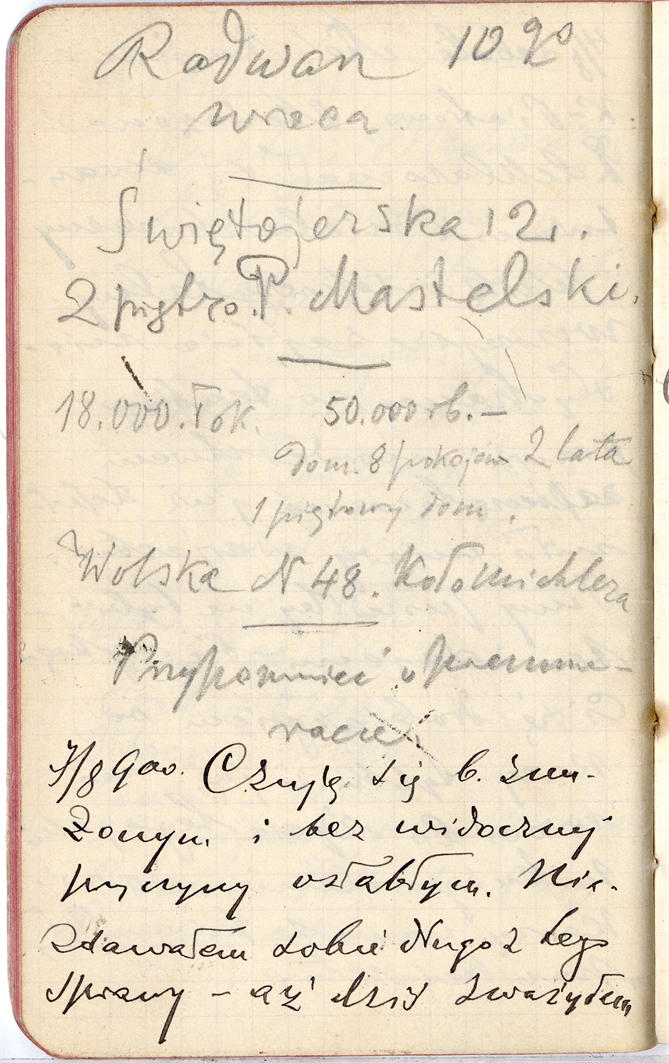 Radwan 10go
wraca.
Świętojerska 12.
2 piętro. P. Mastelski.
18.000. łok. 50.000 rb. –
dom. 8 pokojów 2 lata
1 piętrowy dom.
Wolska N 48. Koło Michlera
Przypomnieć o prenume-
racie
7/8 900. Czuję się b. znu-
żonym i bez widocznej
przyczyny osłabłym. Nie
zdawałem sobie długo z tego
sprawy – aż dziś zważyłem